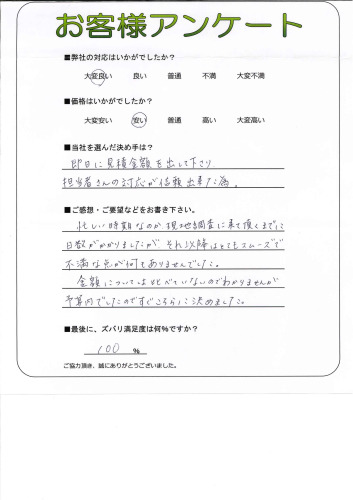 お客様アンケート
■弊社の対応はいかがでしたか？
大変良い 良い 普通 不満 大変不満
■価格はいかがでしたか？
大変安い 安い 普通 高い 大変高い
■当社を選んだ決め手は？
即日に見積金額を出して下さり
担当者さんの対応が信頼出来た為。
■ご感想・ご要望などをお書き下さい。
忙しい時期なのか現地調査に来て頂くまでに
日数がかかりましたが、それ以降はとてもスムーズで
不満な点が何もありませんでした。
金額については比べていないのでわかりませんが
予算内でしたのですぐこちらに決めました。
■最後に、ズバリ満足度は何％ですか？
100 ％
ご協力頂き、誠にありがとうございました。